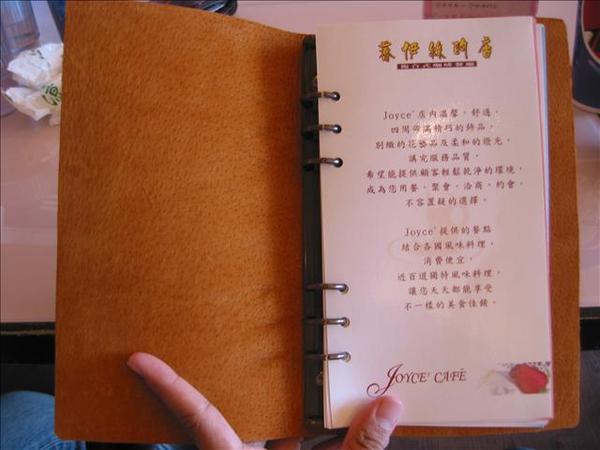 Joyce' 店內溫馨、舒適，
四周佈滿精巧的飾品，
別緻的花藝品及柔和的燈光，
講究服務品質，
希望能提供顧客輕鬆乾淨的環境，
成為您用餐、聚會、洽商、約會，
不容置疑的選擇。
Joyce' 提供的餐點
結合各國風味料理，
消費便宜，
近百道獨特風味料理，
讓您天天都能享受
不一樣的美食佳餚。
JOYCE' CAFÉ